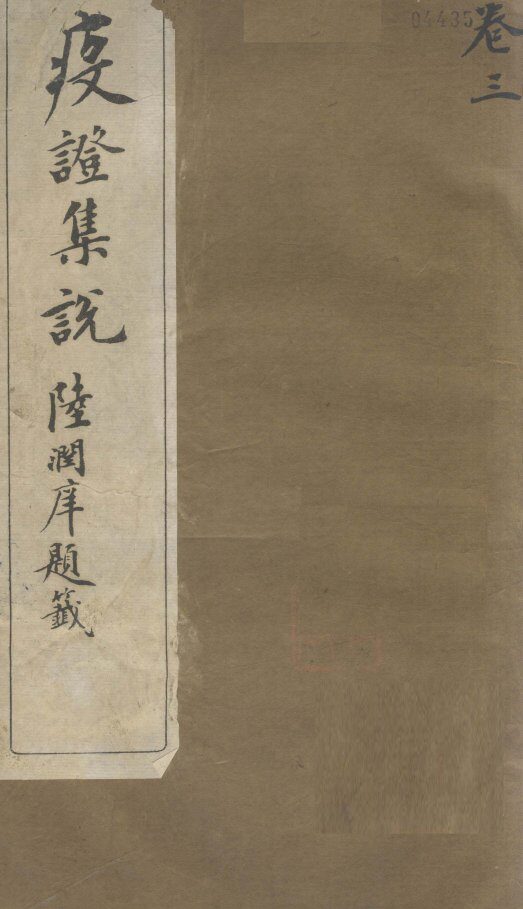 04435
卷三
疫證集說
陸潤庠題籤